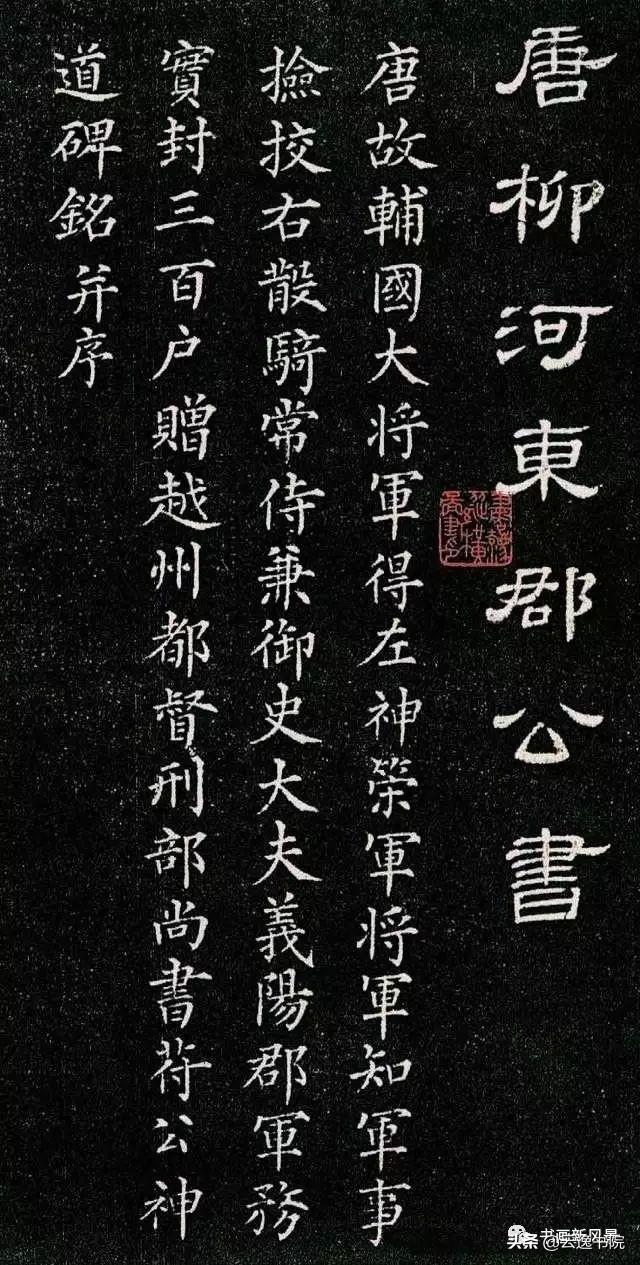 唐柳河東郡公書
唐故輔國大将軍得左神策軍将軍知軍事
撿挍右散騎常侍兼御史大夫義陽郡軍務
實封三百户贈越州都督刑部尚書苻公神
道碑銘并序
书画新风景
头条@云逸书院